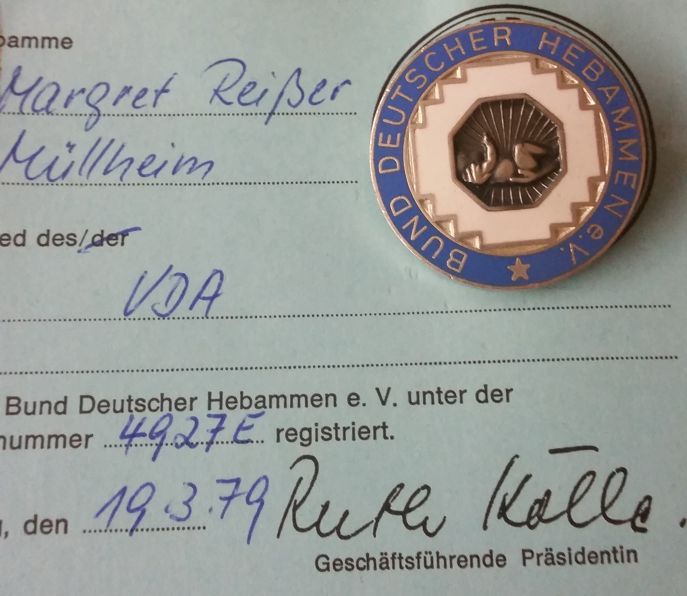 BUND DEUTSCHER HEBAMMEN e.V.
bamme
Margret Reißer
Müllheim
ed des/der
VDA
Bund Deutscher Hebammen e. V. unter der
nummer 4927E registriert.
, den 19.3.79 Ruth Kölle
Geschäftsführende Präsidentin